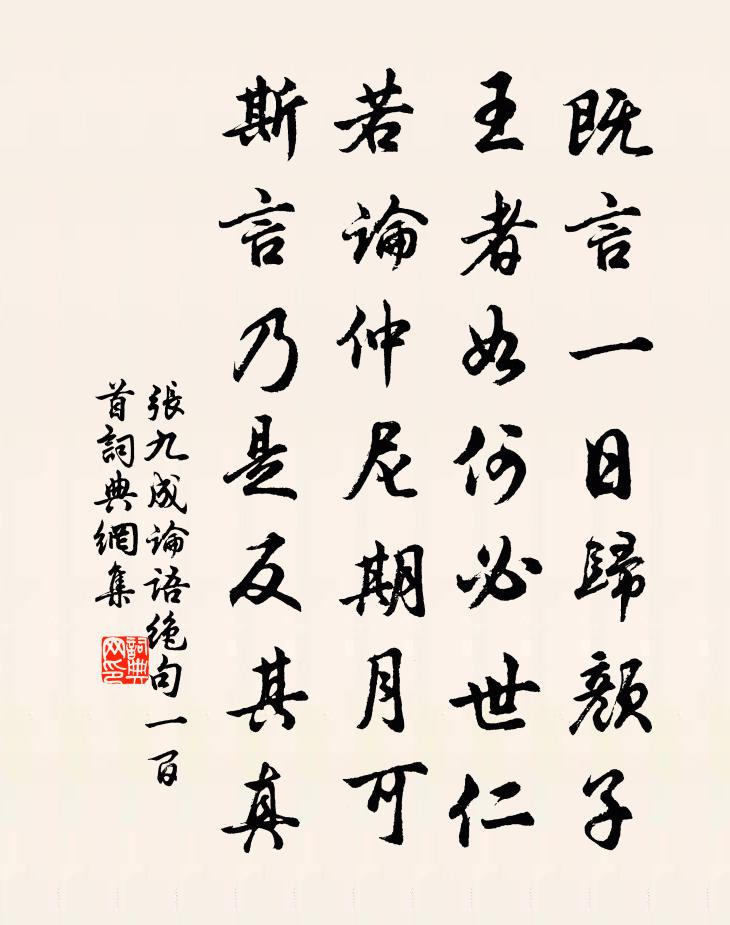 既言一日歸顏子
王者如何必世仁
若論仲尼期月可
斯言乃是反其真
張九成論語絕句一百
首詞典網集
詞典
网印